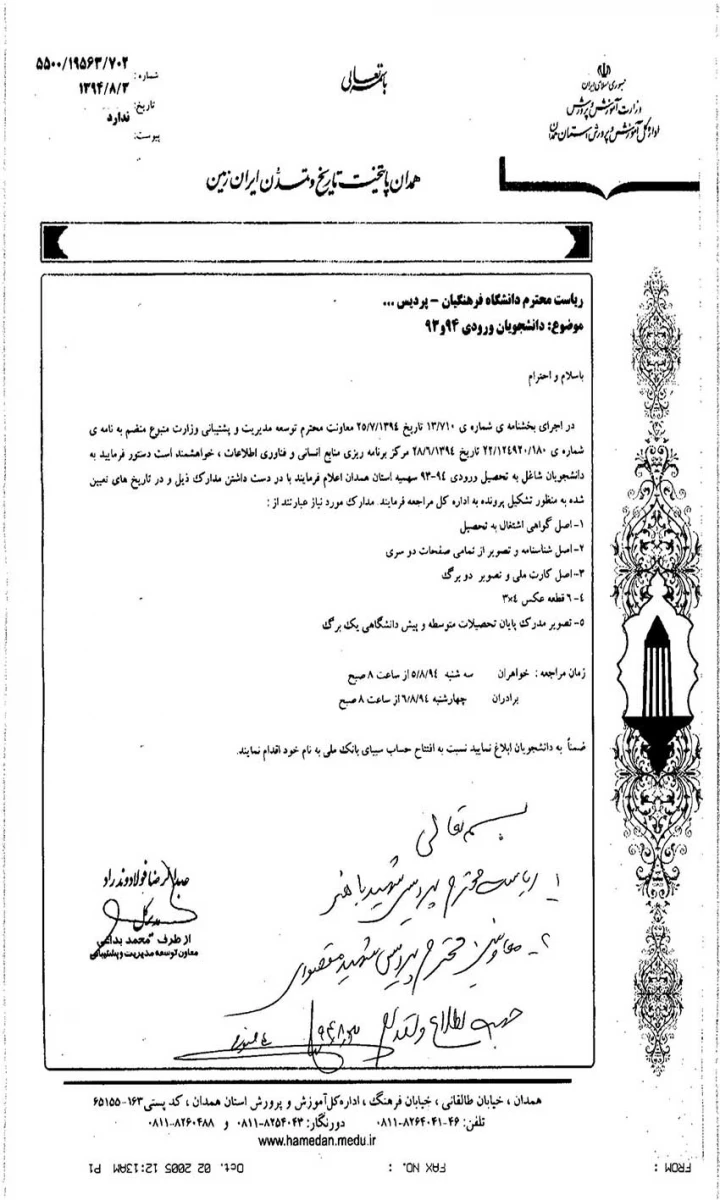 باسمه تعالی
جمهوری اسلامی ایران
وزارت آموزش و پرورش
اداره کل آموزش و پرورش استان همدان
شماره: ۵۵۰۰/۱۹۵۶۳/۷۰۲
تاریخ: ۱۳۹۴/۸/۳
پیوست: ندارد
همدان پایتخت تاریخ و تمدن ایران زمین
ریاست محترم دانشگاه فرهنگیان – پردیس ...
موضوع: دانشجویان ورودی ۹۴و۹۳
باسلام و احترام
در اجرای بخشنامه ی شماره ی ۱۳/۷۱۰ تاریخ ۲۵/۷/۱۳۹۴ معاونت محترم توسعه مدیریت و پشتیبانی وزارت متبوع منضم به نامه ی
شماره ی ۲۲/۱۲۴۹۲۰/۱۸۰ تاریخ ۲۸/۶/۱۳۹۴ مرکز برنامه ریزی منابع انسانی و فناوری اطلاعات ، خواهشمند است دستور فرمایید به
دانشجویان شاغل به تحصیل ورودی ۹۴-۹۳ سهمیه استان همدان اعلام فرمایند با در دست داشتن مدارک ذیل و در تاریخ های تعیین
شده به منظور تشکیل پرونده به اداره کل مراجعه فرمایند. مدارک مورد نیاز عبارتند از :
۱- اصل گواهی اشتغال به تحصیل
۲-اصل شناسنامه و تصویر از تمامی صفحات دو سری
۳-اصل کارت ملی و تصویر دو برگ
۴- ۶ قطعه عکس ۴×۳
۵- تصویر مدرک پایان تحصیلات متوسطه و پیش دانشگاهی یک برگ
زمان مراجعه : خواهران سه شنبه ۵/۸/۹۴ از ساعت ۸ صبح
برادران چهارشنبه ۶/۸/۹۴ از ساعت ۸ صبح
ضمناً به دانشجویان ابلاغ نمایید نسبت به افتتاح حساب سیبای بانک ملی به نام خود اقدام نمایند.
بسمه تعالی
۱- ریاست محترم پردیس شهید باهنر
۲- معاونین محترم پردیس شهید مقصودی
جهت اطلاع و اقدام
فولادوند راد
مدیرکل
از طرف محمد
معاون توسعه مدیریت و پشتیبانی
همدان ، خیابان طالقانی ، خیابان فرهنگ ، اداره کل آموزش و پرورش استان همدان ، کد پستی ۱۶۳-۶۵۱۵۵
تلفن: ۴۶-۸۲۶۴۰۴۱-۰۸۱۱ دورنگار: ۸۲۵۴۰۴۳-۰۸۱۱ و ۸۲۶۰۴۸۸-۰۸۱۱
www.hamedan.medu.ir
FROM : FAX NO. : Oct. 02 2005 12:13AM P1